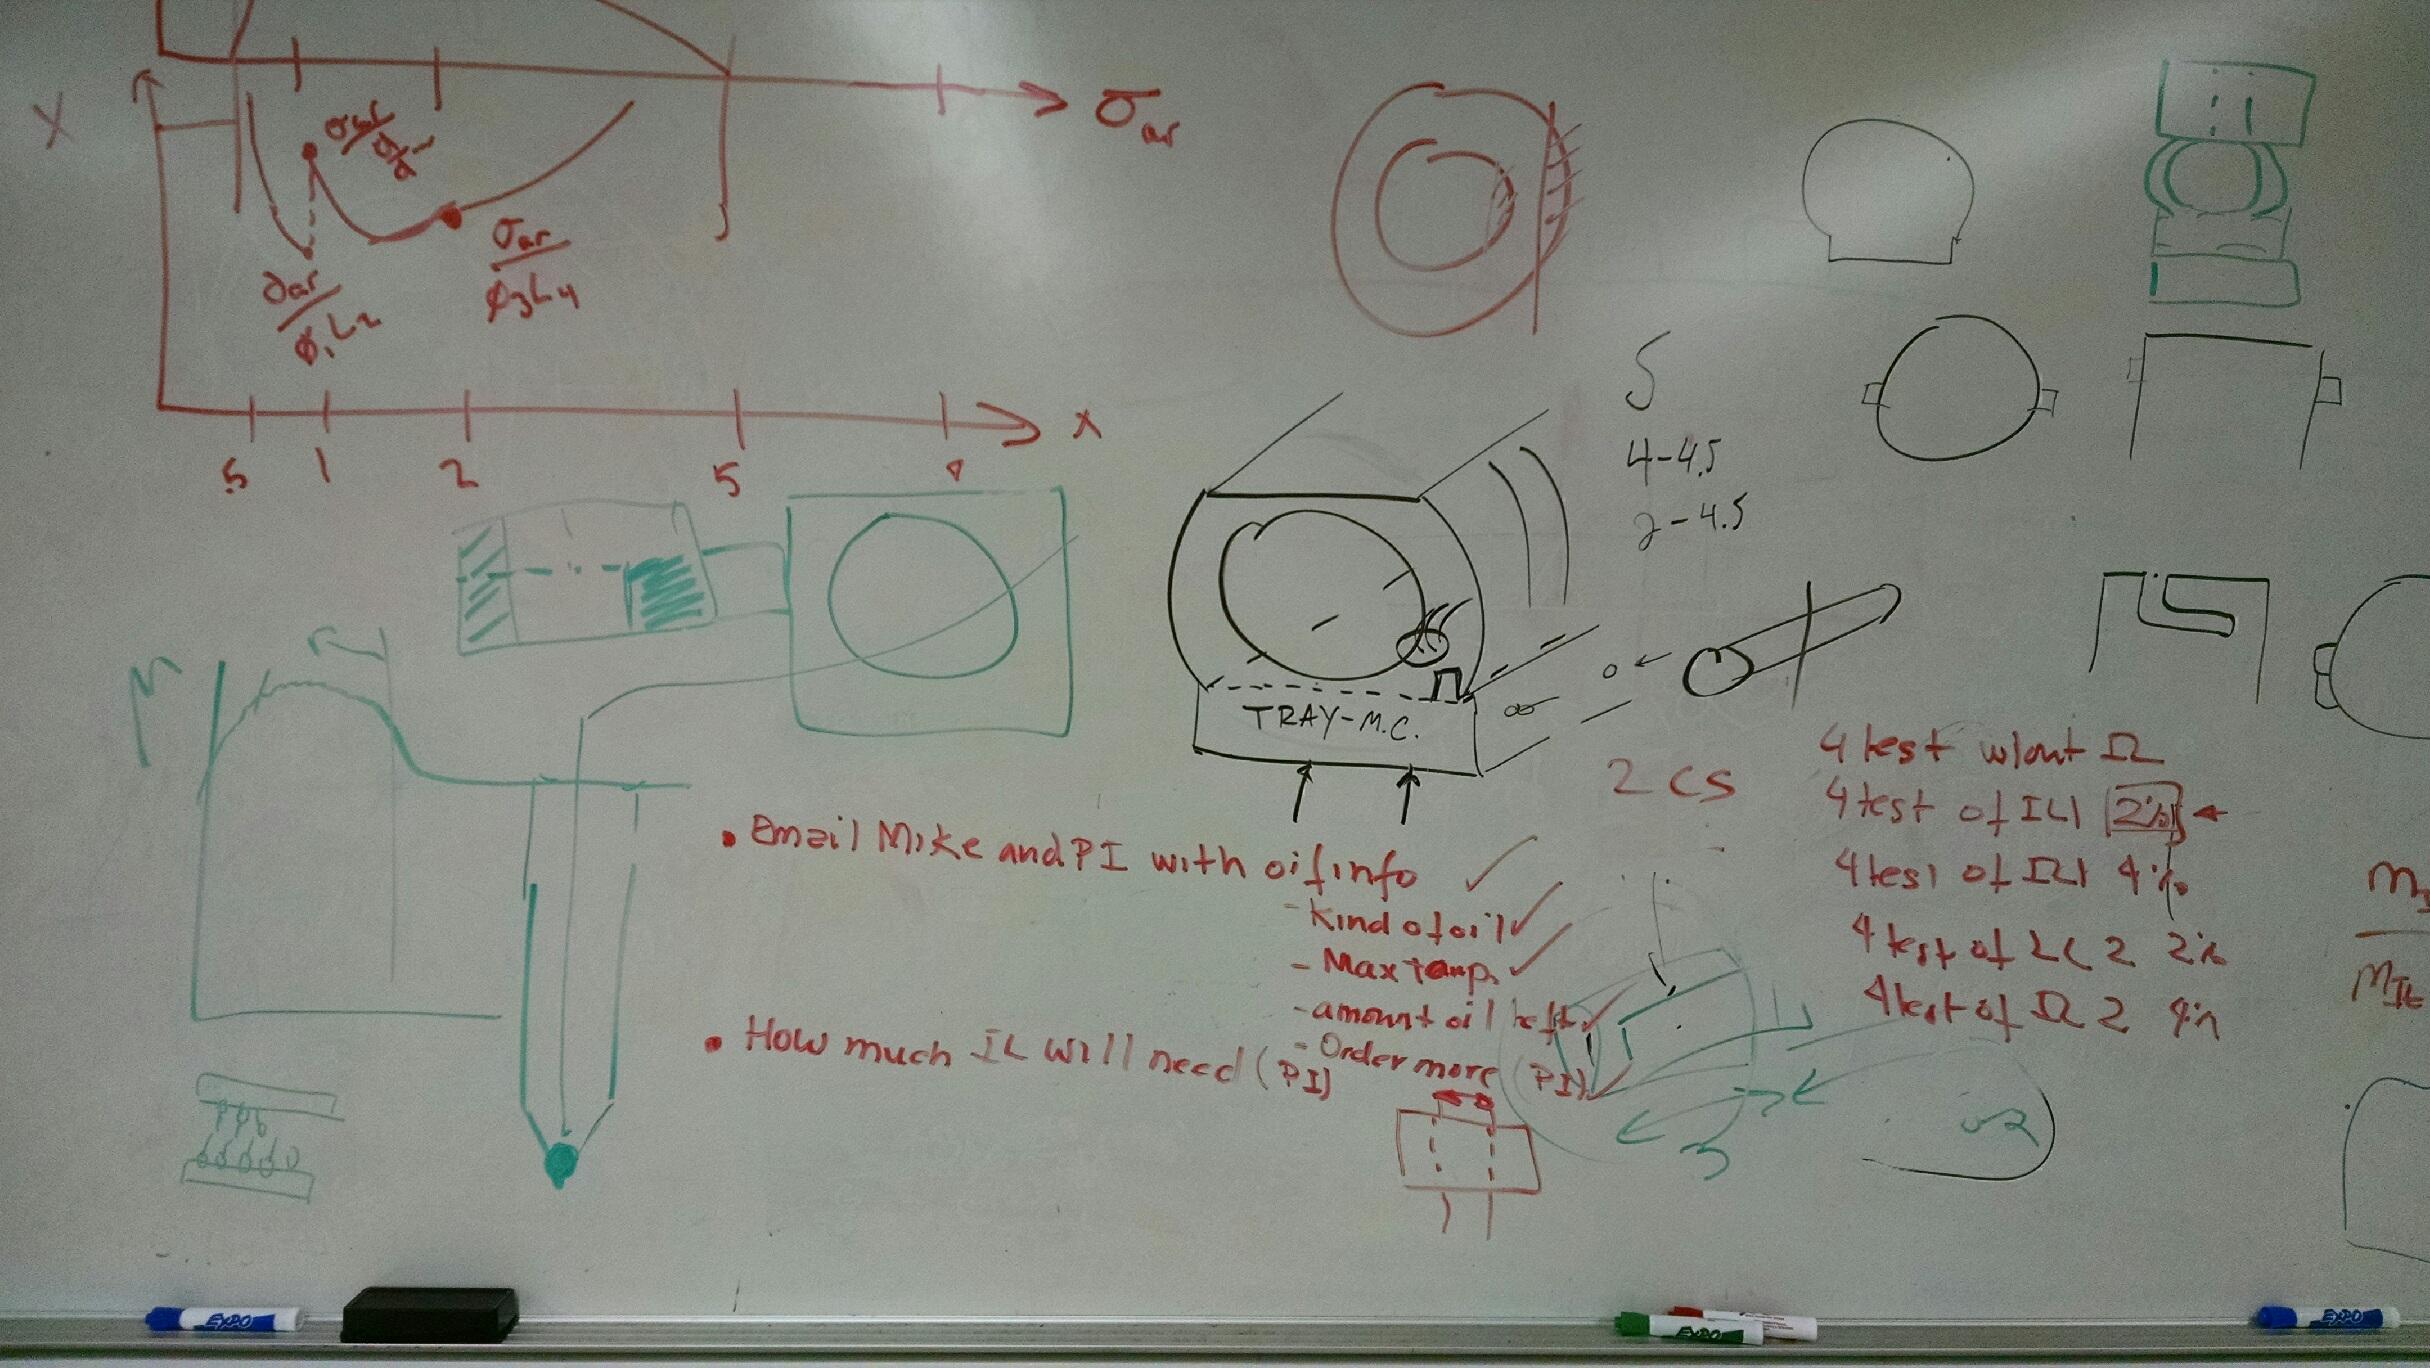 X
σar
σar
ø3L4
.5 1 2 5
x
5
4-4.5
2-4.5
TRAY-M.C.
2 CS
4 test w/out IL
4 test of IL1 2%
4 test of IL1 4%
4 test of IL 2 2%
4 test of IL 2 4%
• Email Mike and PI with oil info
- Kind of oil
- Max temp.
- amount oil left
- Order more (PI)
• How much IL will need (PI)
EXPO
EXPO
EXPO